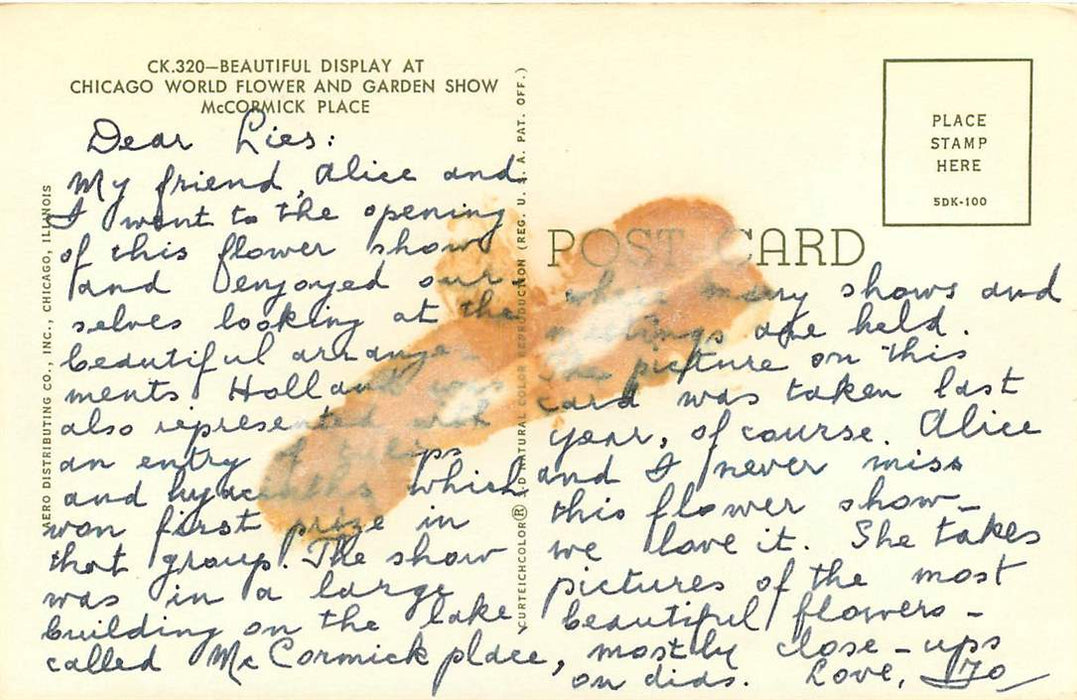 CK.320—BEAUTIFUL DISPLAY AT
CHICAGO WORLD FLOWER AND GARDEN SHOW
McCORMICK PLACE
Dear Lies:
My friend, Alice and
I went to the opening
of this flower show
and enjoyed our-
selves looking at the
beautiful arrange-
ments Holland was
also represented with
an entry of tulips
and hyacinths which
won first prize in
that group. The show
was in a large
building on the lake,
called McCormick place,
where many shows and
meetings are held.
The picture on this
card was taken last
year, of course. Alice
and I never miss
this flower show–
we love it. She takes
pictures of the most
beautiful flowers–
mostly close-ups
on dias. Love, Ito
AERO DISTRIBUTING CO., INC., CHICAGO, ILLINOIS
CURTEICHCOLOR® 3-D NATURAL COLOR REPRODUCTION (REG. U. S. A. PAT. OFF.)
POST CARD
PLACE
STAMP
HERE
5DK-100